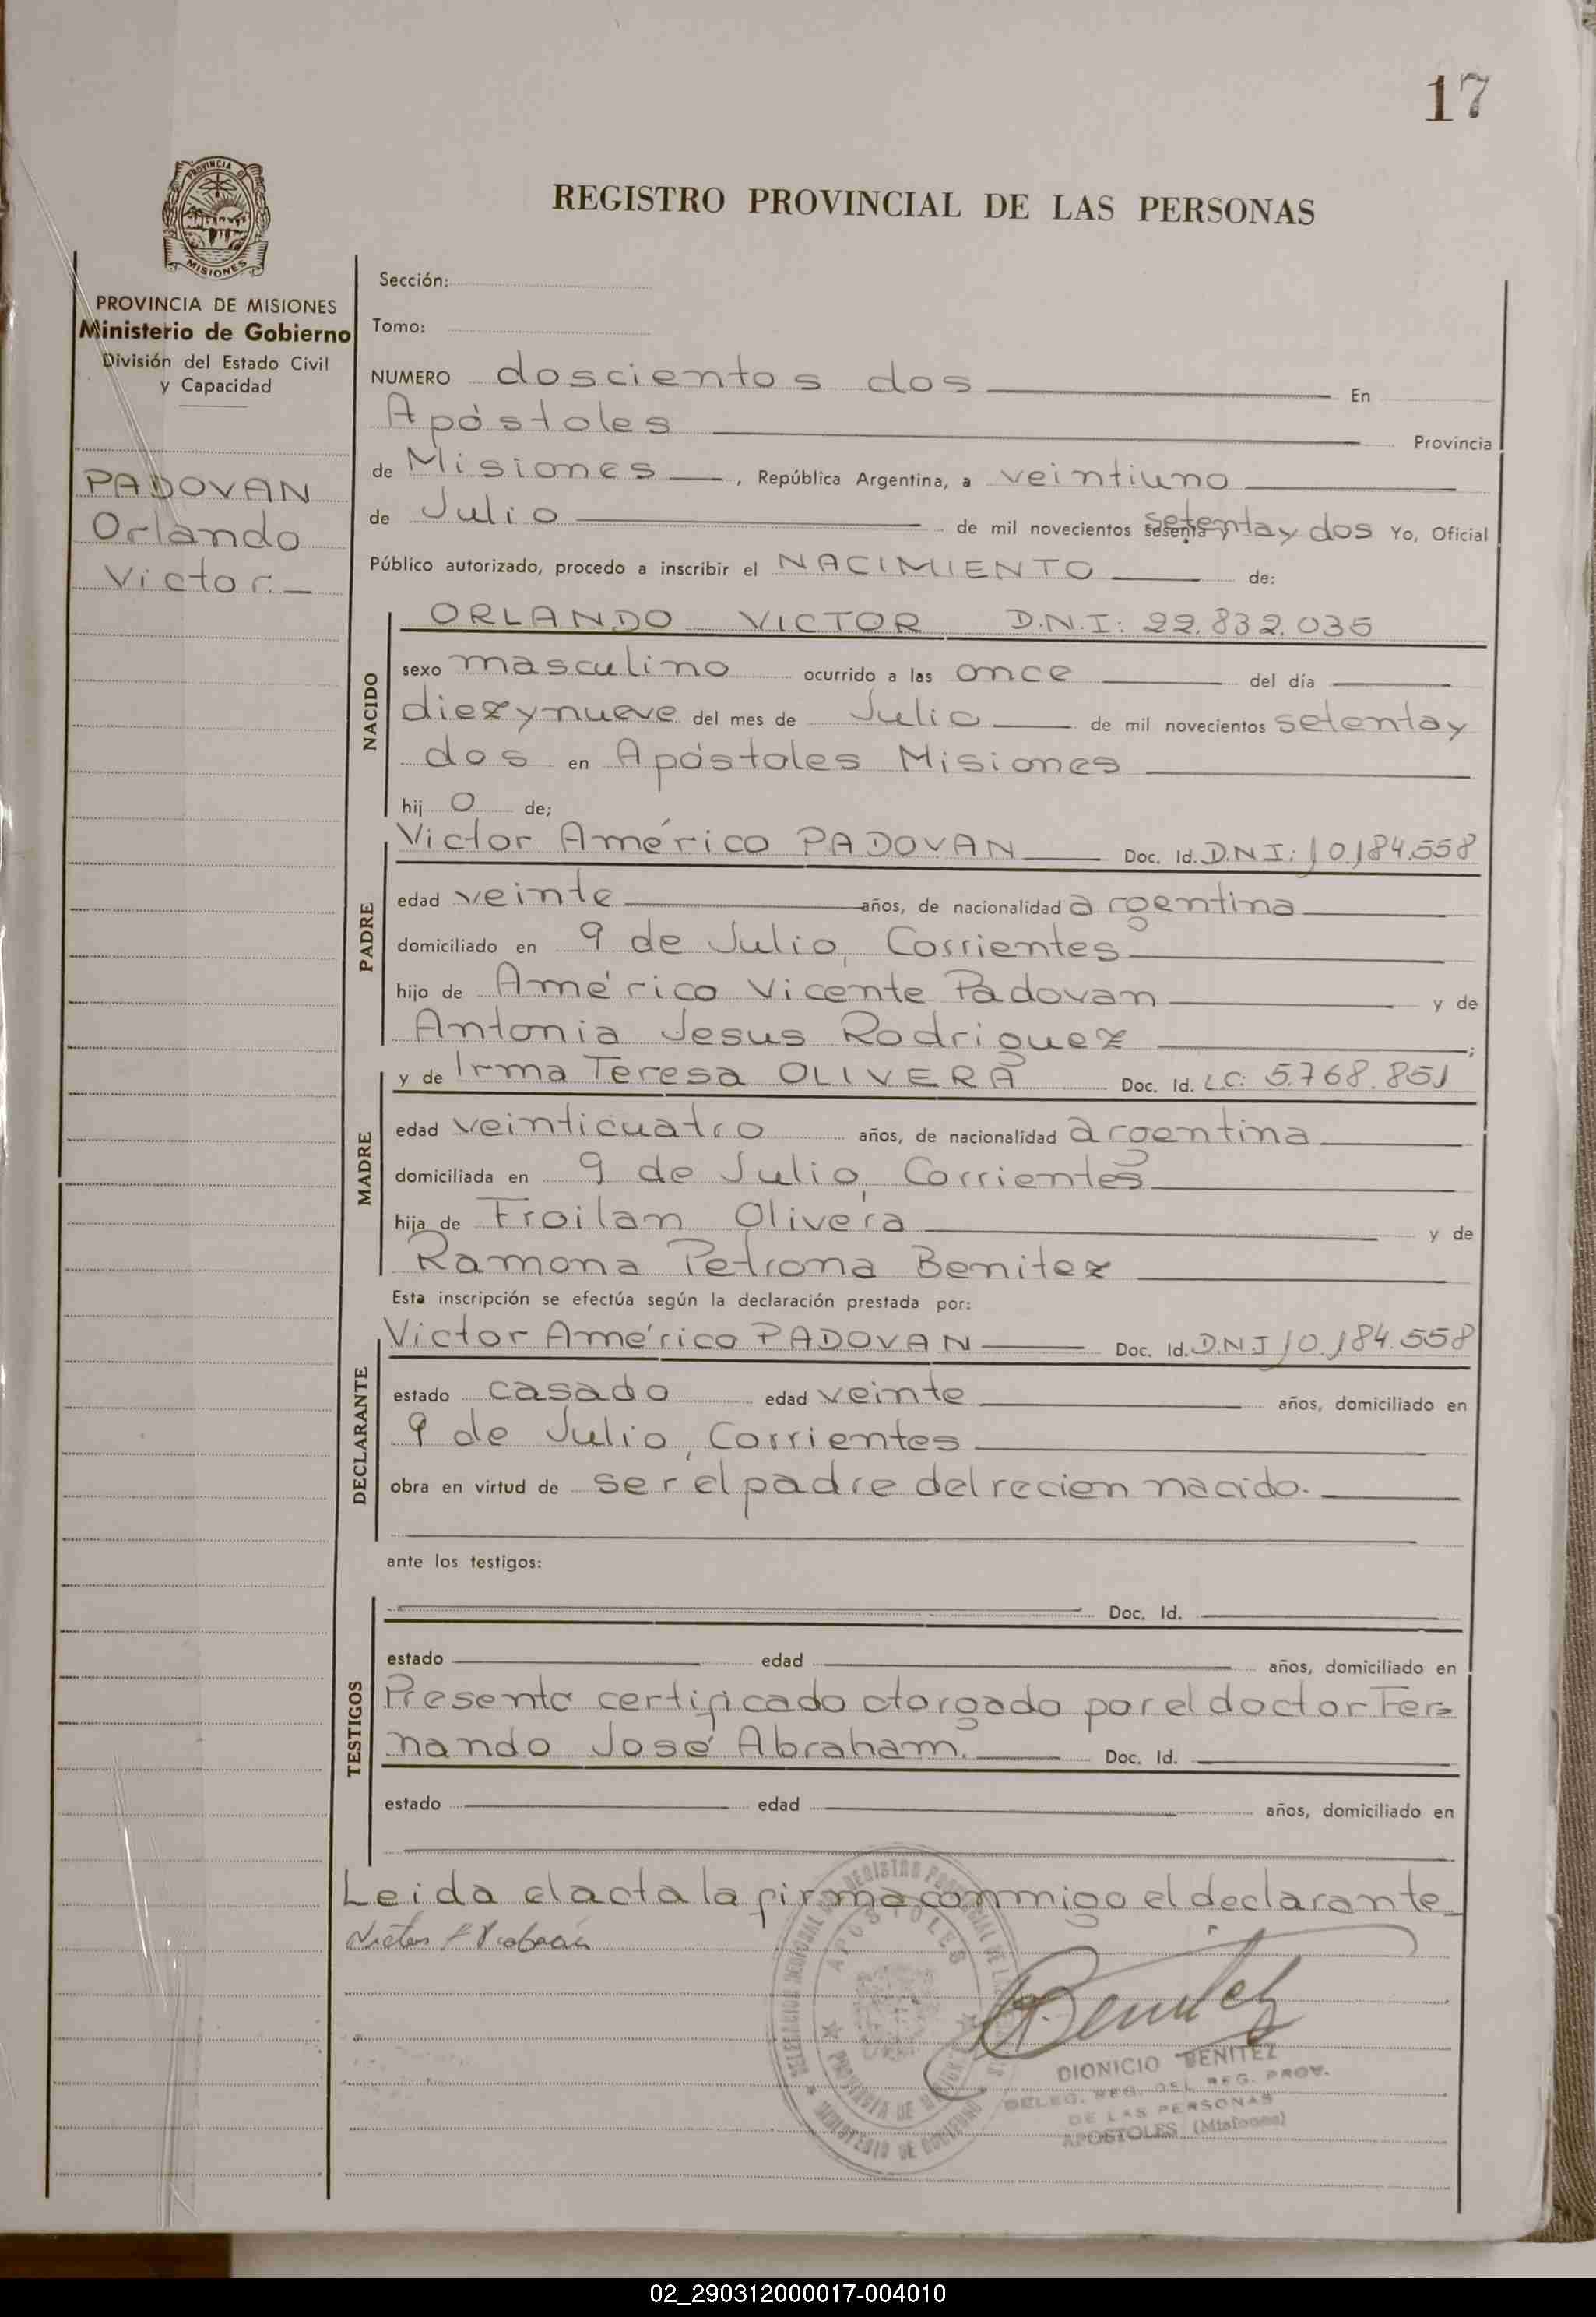 17
PROVINCIA DE
MISIONES
REGISTRO PROVINCIAL DE LAS PERSONAS
PROVINCIA DE MISIONES
Ministerio de Gobierno
División del Estado Civil
y Capacidad
PADOVAN
Orlando
Victor.
Sección:
Tomo:
NUMERO doscientos dos En
Apóstoles Provincia
de Misiones, República Argentina, a veintiuno
de Julio de mil novecientos setenta y dos Yo, Oficial
Público autorizado, procedo a inscribir el NACIMIENTO de:
NACIDO
ORLANDO VICTOR D.N.I: 22.832.035
sexo masculino ocurrido a las once del día
diez y nueve del mes de Julio de mil novecientos setenta y
dos en Apóstoles Misiones
hij o de;
PADRE
Victor Américo PADOVAN Doc. Id. D.N.I: 10.184.558
edad veinte años, de nacionalidad argentina
domiciliado en 9 de Julio, Corrientes
hijo de Américo Vicente Padovan y de
Antonia Jesus Rodriguez ;
MADRE
y de Irma Teresa OLIVERA Doc. Id. L.C: 5.768.851
edad veinticuatro años, de nacionalidad argentina
domiciliada en 9 de Julio, Corrientes
hija de Froilan Olivera y de
Ramona Petrona Benitez
Esta inscripción se efectúa según la declaración prestada por:
DECLARANTE
Victor Américo PADOVAN Doc. Id. D.N.I 10.184.558
estado casado edad veinte años, domiciliado en
9 de Julio, Corrientes
obra en virtud de ser el padre del recien nacido.
ante los testigos:
TESTIGOS
Doc. Id.
estado edad años, domiciliado en
Presento certificado otorgado por el doctor Fer=
nando José Abraham. Doc. Id.
estado edad años, domiciliado en
Leida el acta la firma conmigo el declarante
APOSTOLES
PROVINCIA DE MISIONES
MINISTERIO DE GOBIERNO
Benitez
DIONICIO BENITEZ
DELEG. REG. DEL REG. PROV.
DE LAS PERSONAS
APOSTOLES (Misiones)
02_290312000017-004010